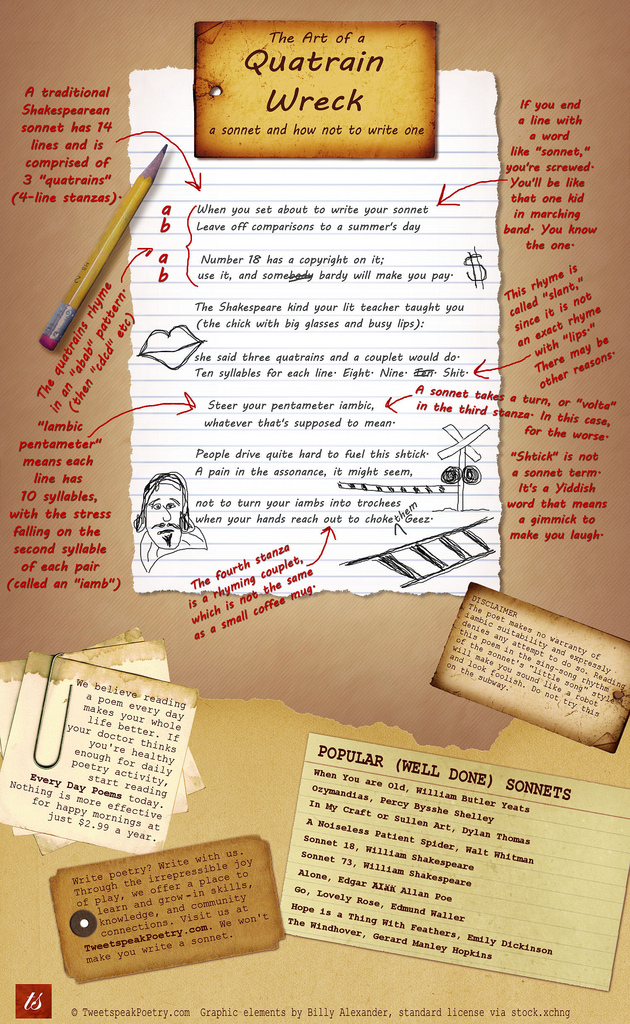 The Art of a
Quatrain
Wreck
a sonnet and how not to write one
A traditional
Shakespearean
sonnet has 14
lines and is
comprised of
3 "quatrains"
(4-line stanzas).
If you end
a line with
a word
like "sonnet,"
you're screwed.
You'll be like
that one kid
in marching
band. You know
the one.
a When you set about to write your sonnet
b Leave off comparisons to a summer's day
a Number 18 has a copyright on it;
b use it, and somebody bardy will make you pay.
$
The quatrains rhyme
in an "abab" pattern.
(then "cdcd" etc)
The Shakespeare kind your lit teacher taught you
(the chick with big glasses and busy lips):
she said three quatrains and a couplet would do.
Ten syllables for each line. Eight. Nine. Ten. Shit.
This rhyme is
called "slant,"
since it is not
an exact rhyme
with "lips."
There may be
other reasons.
Steer your pentameter iambic,
whatever that's supposed to mean.
A sonnet takes a turn, or "volta"
in the third stanza. In this case,
for the worse.
"Iambic
pentameter"
means each
line has
10 syllables,
with the stress
falling on the
second syllable
of each pair
(called an "iamb")
People drive quite hard to fuel this shtick.
A pain in the assonance, it might seem,
"Shtick" is not
a sonnet term.
It's a Yiddish
word that means
a gimmick to
make you laugh.
not to turn your iambs into trochees
when your hands reach out to choke them Geez.
The fourth stanza
is a rhyming couplet,
which is not the same
as a small coffee mug.
DISCLAIMER
The poet makes no warranty of
iambic suitability and expressly
denies any attempt to do so. Reading
this poem in the sing-song rhythm
of the sonnet's "little song" style
will make you sound like a robot
and look foolish. Do not try this
on the subway.
We believe reading
a poem every day
makes your whole
life better. If
your doctor thinks
you're healthy
enough for daily
poetry activity,
start reading
Every Day Poems today.
Nothing is more effective
for happy mornings at
just $2.99 a year.
POPULAR (WELL DONE) SONNETS
When You are Old, William Butler Yeats
Ozymandias, Percy Bysshe Shelley
In My Craft or Sullen Art, Dylan Thomas
A Noiseless Patient Spider, Walt Whitman
Sonnet 18, William Shakespeare
Sonnet 73, William Shakespeare
Alone, Edgar Allan Poe
Go, Lovely Rose, Edmund Waller
Hope is a Thing With Feathers, Emily Dickinson
The Windhover, Gerard Manley Hopkins
Write poetry? Write with us.
Through the irrepressible joy
of play, we offer a place to
learn and grow-in skills,
knowledge, and community
connections. Visit us at
TweetspeakPoetry.com. We won't
make you write a sonnet.
ts
© TweetspeakPoetry.com Graphic elements by Billy Alexander, standard license via stock.xchng